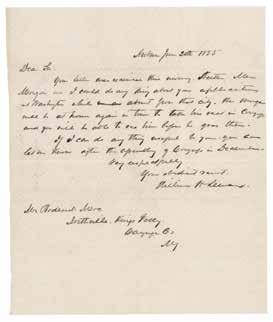 Auburn June 20th 1855
Dear Sir
Your letter was received this morning. Neither Mr
Morgan nor I could do any thing about your application
at Washington while absent from this city. Mr Morgan
will be at home again in time to take his seat in Congress
and you will be able to see him before he goes there.
If I can do any thing useful to you you can
let me know after the opening of Congress in December.
Very respectfully
Your obedient servant
William H Seward
Mr Roderick
Kings Ferry
Cayuga Co
NY